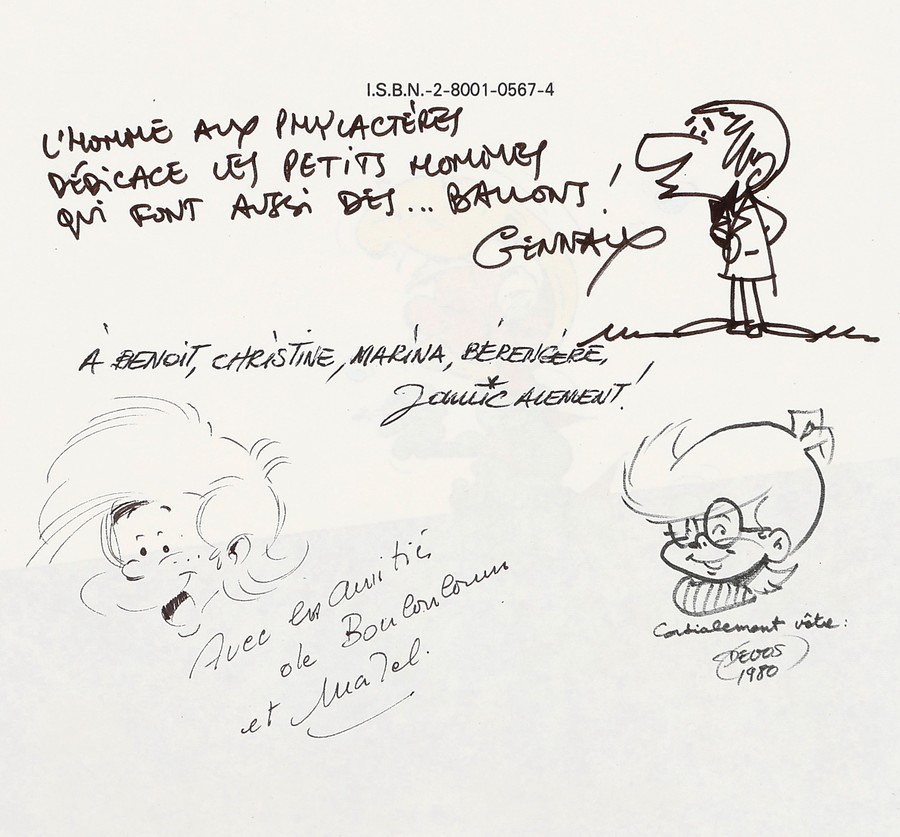 I.S.B.N.-2-8001-0567-4
L'HOMME AUX PHYLACTÈRES
DÉDICACE LES PETITS HOMMES
QUI FONT AUSSI DES... BALLONS!
GENNAUX
À BENOIT, CHRISTINE, MARINA, BÉRENGÈRE,
JAMICALEMENT!
Avec les amitiés
de Boulouloum
et Mazel.
Cordialement vôtre:
DEVOS
1980